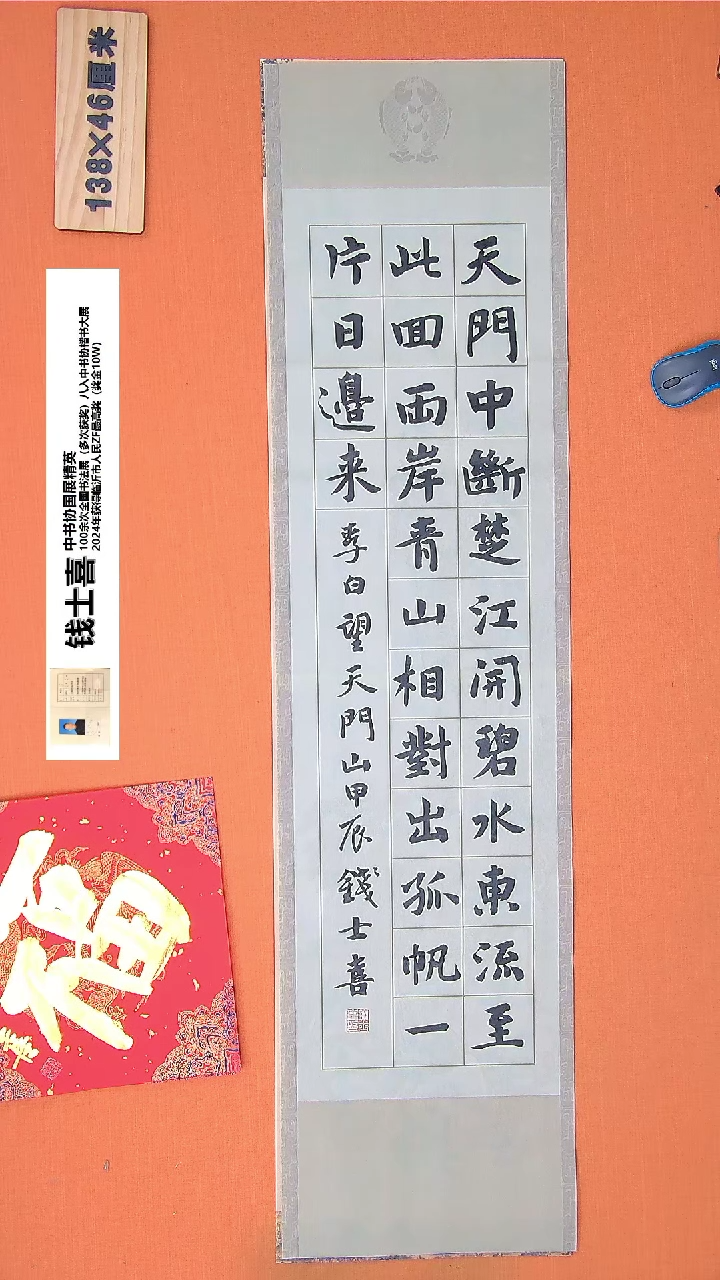 天門中斷楚江開碧水東流至
此回兩岸青山相對出孤帆一
片日邊来
李白望天門山甲辰錢士喜
138×46厘米
钱士喜
中书协国展精英
100余次全国书法展（多次获奖）八入中书协楷书大展
2024年获得临沂市人民ZF最高奖（奖金10W）
福